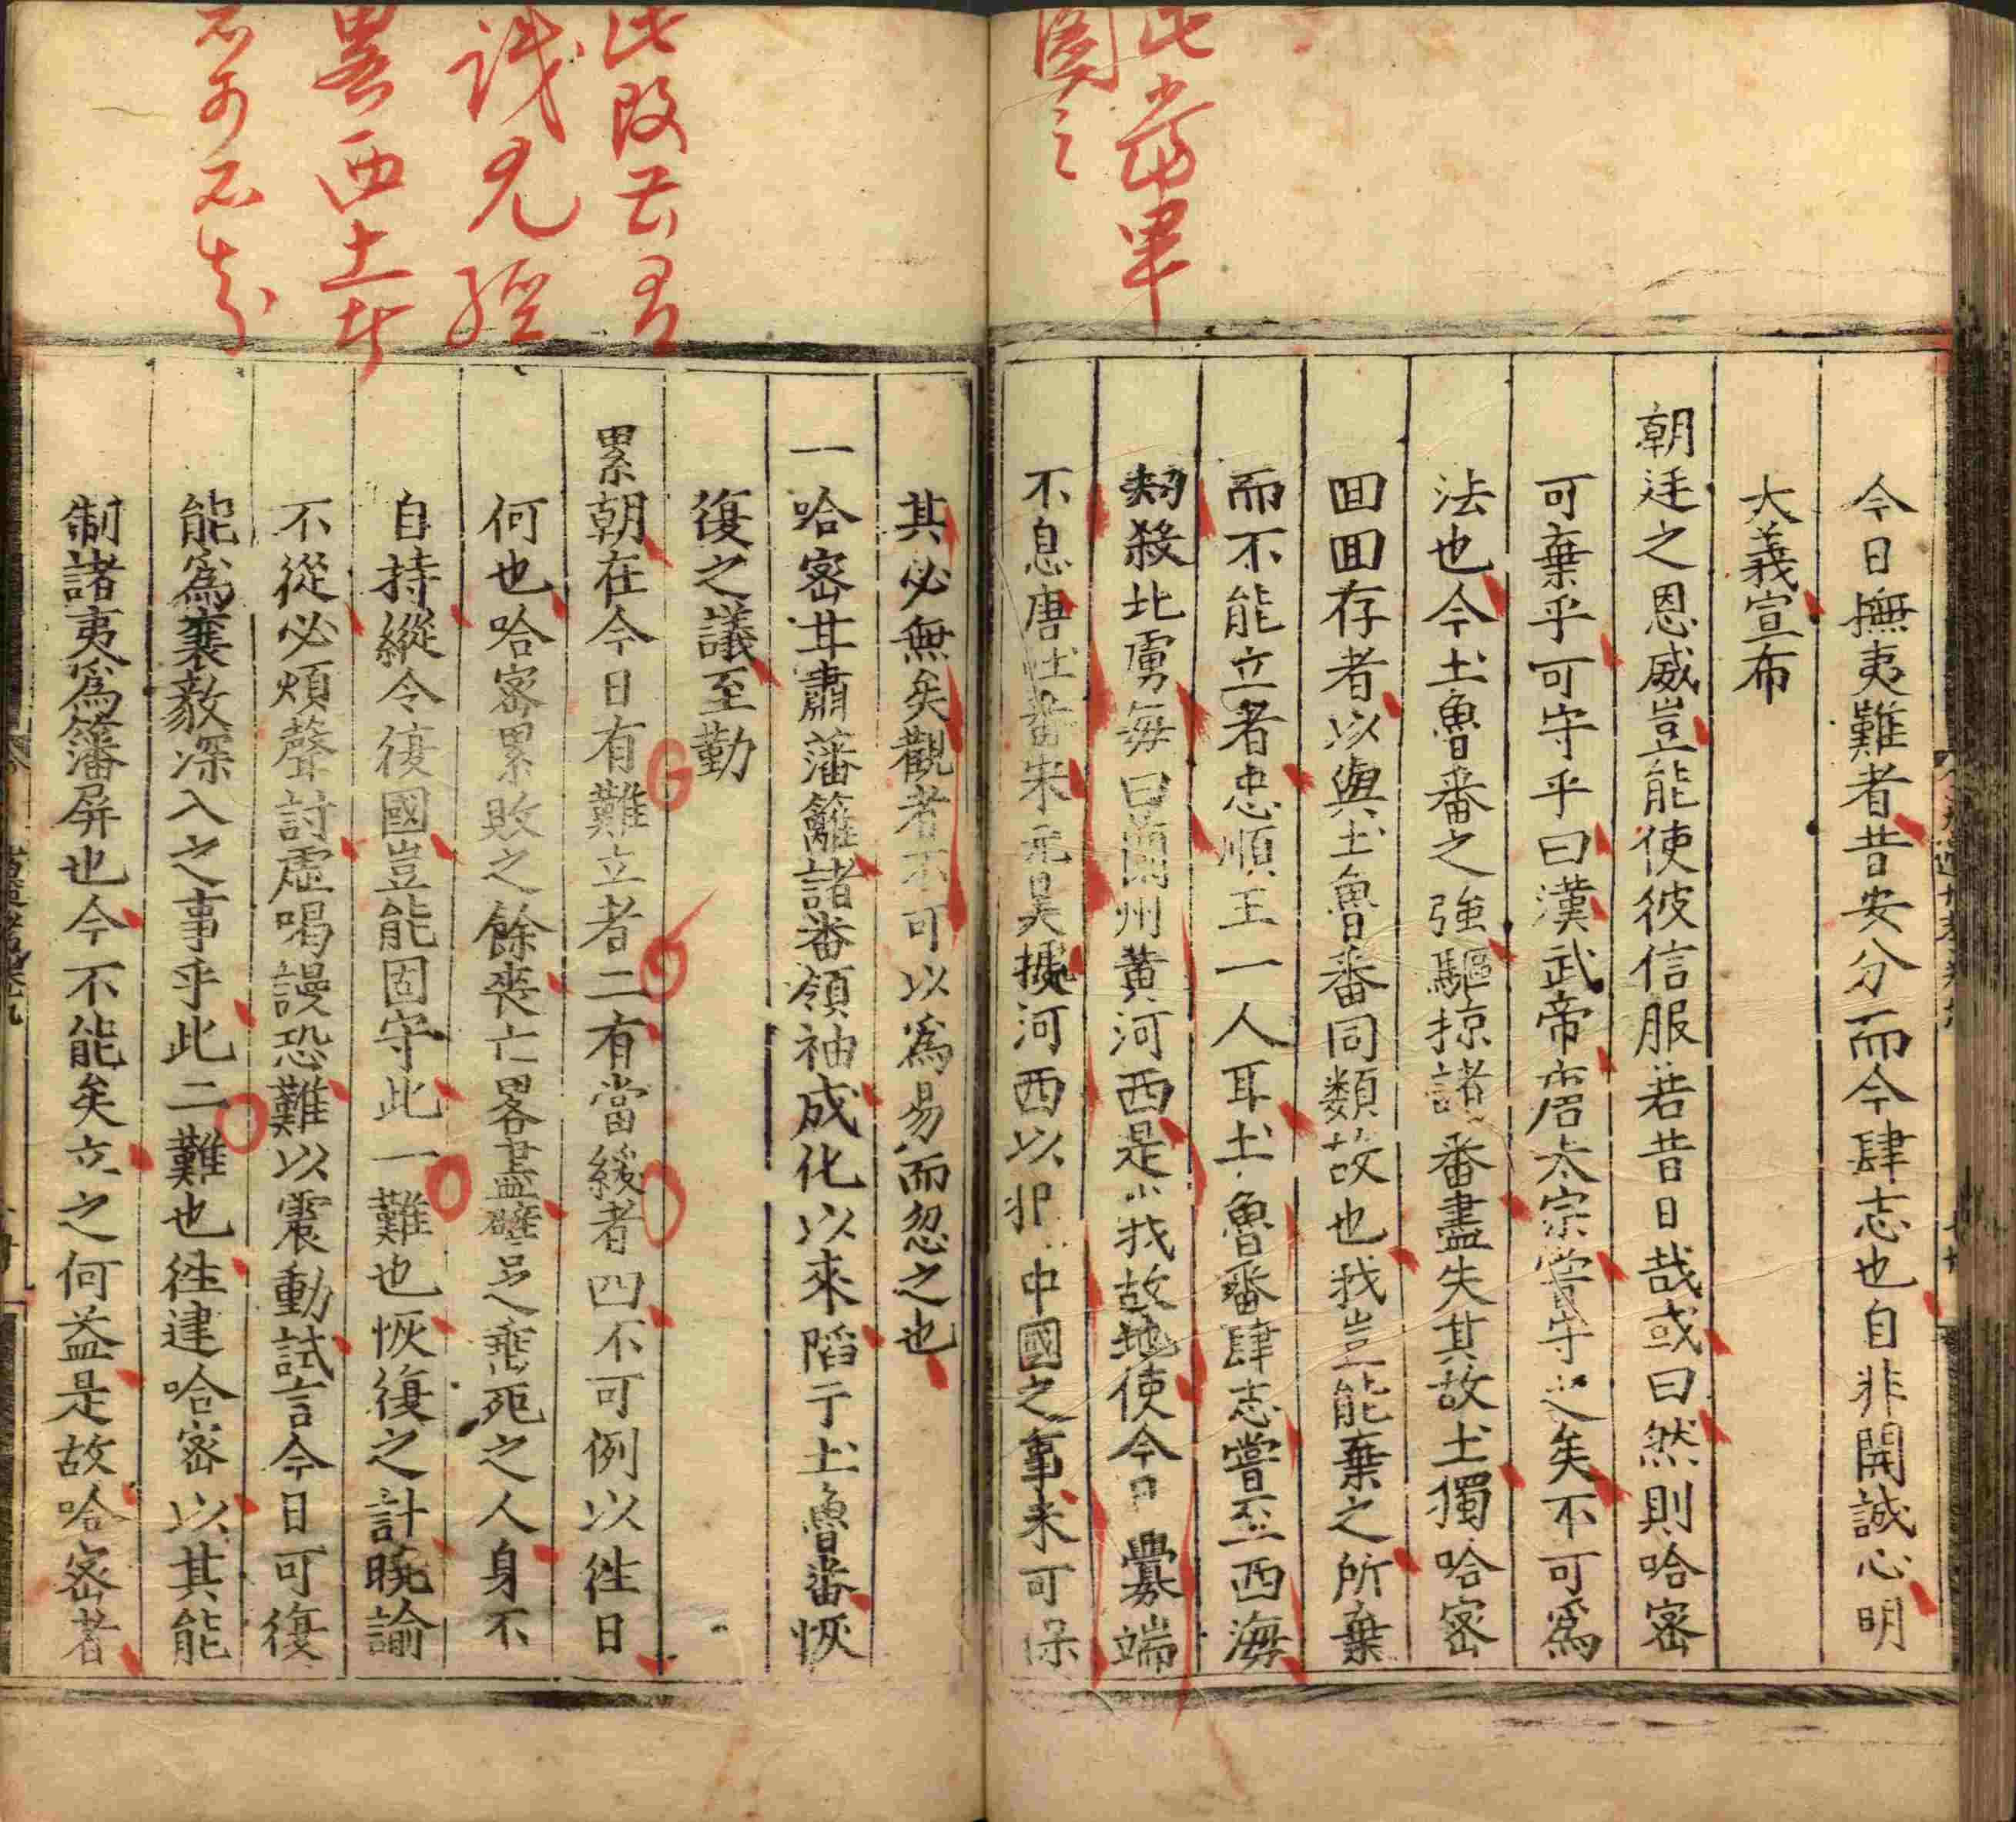 此當畢
圖之
今日撫夷難者昔安分而今肆志也自非開誠心明
大義宣布
朝廷之恩威豈能使彼信服若昔日哉或曰然則哈密
可棄乎可守乎曰漢武帝唐太宗嘗守之矣不可爲
法也今土魯番之強驅掠諸番盡失其故土獨哈密
回回存者以與土魯番同類故也我豈能棄之所棄
而不能立者忠順王一人耳土魯番肆志嘗至西海
刼殺北虜每曰蘭州黃河西是我故地使今日釁端
不息唐吐番宋元昊據河西以犯中國之事未可保
此段
誠
略西土者
不可不知
其必無矣觀者不可以爲易而忽之也
一哈密甘肅藩籬諸番領袖成化以來陷于土魯番恢
復之議至勤
累朝在今日有難立者二有當緩者四不可例以往日
何也哈密累敗之餘喪亡畧盡躄足垂死之人身不
自持縱令復國豈能固守此一難也恢復之計曉諭
不從必煩聲討虛喝謾恐難以震動試言今日可復
能爲襄敎深入之事乎此二難也往建哈密以其能
制諸夷爲籓屏也今不能矣立之何益是故哈密者